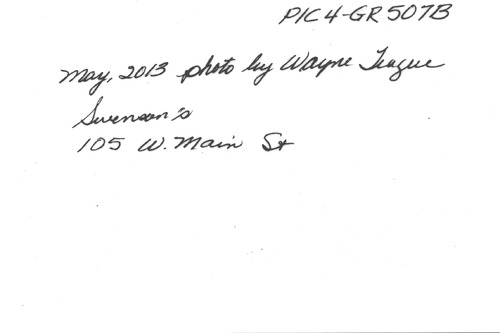 PIC 4-GR 507B
May, 2013 photo by Wayne Teague
Swenson's
105 W. Main St